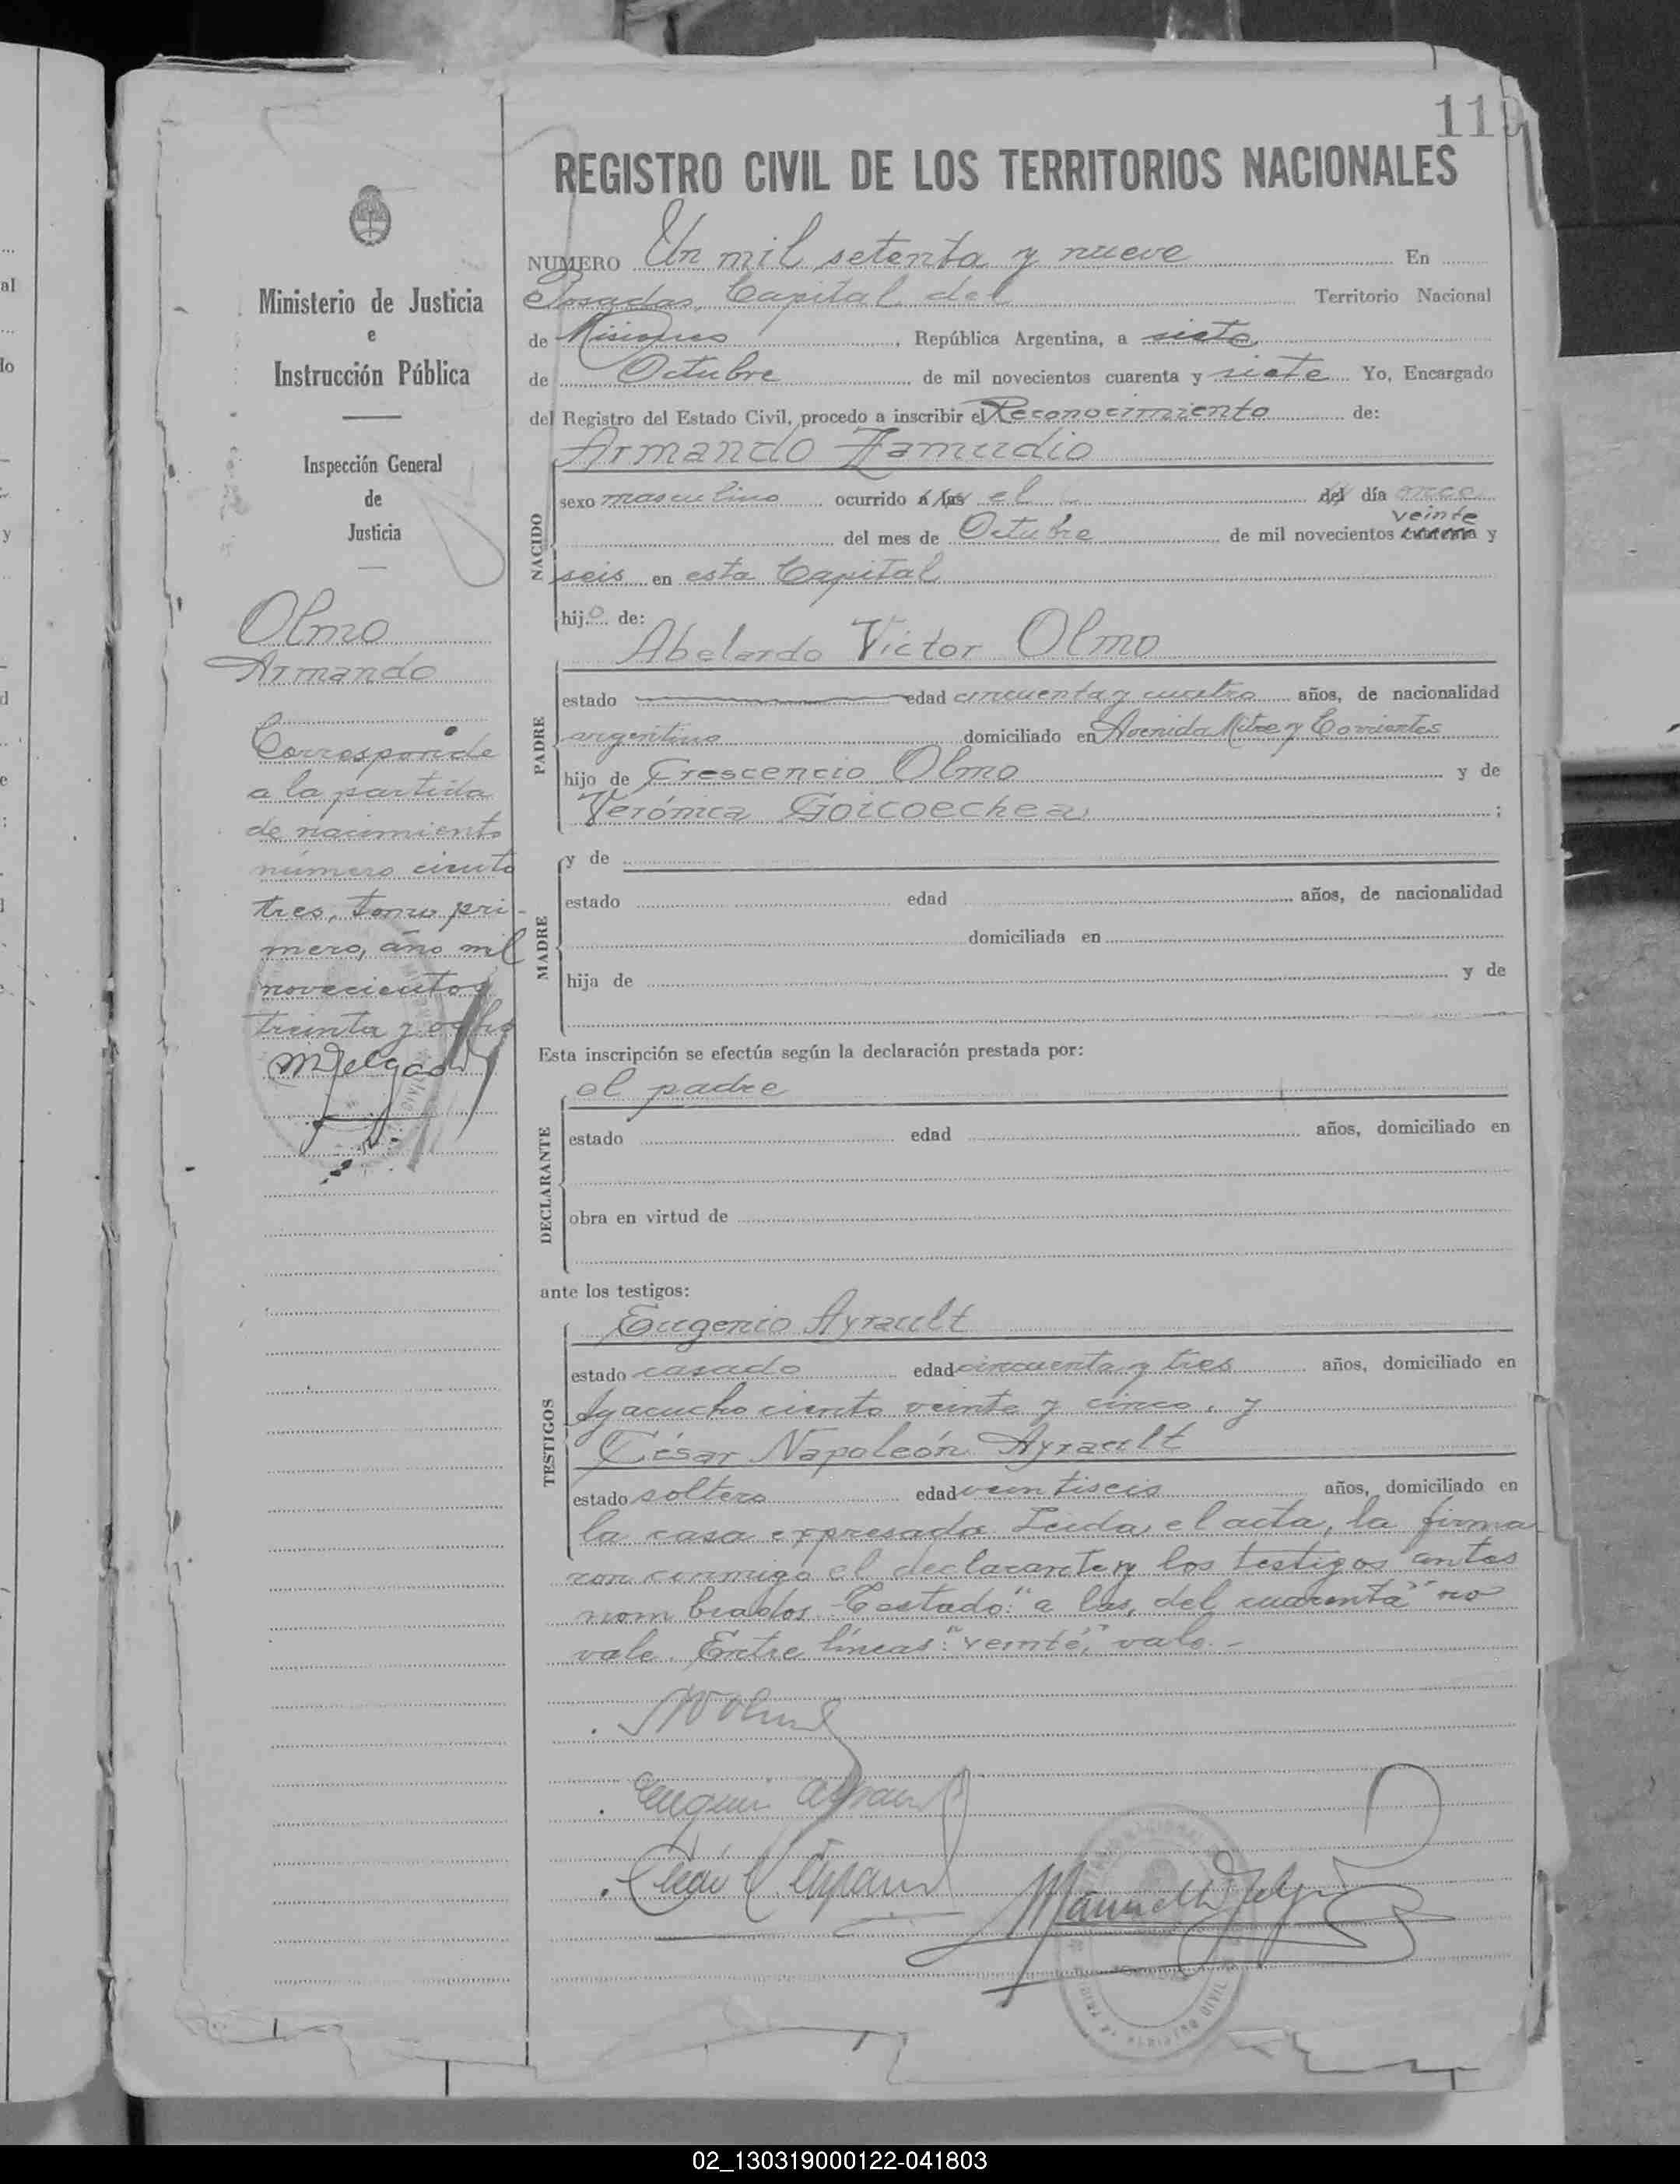 119
REGISTRO CIVIL DE LOS TERRITORIOS NACIONALES
Ministerio de Justicia
e
Instrucción Pública
Inspección General
de
Justicia
Olmo
Armando
Corresponde
a la partida
de nacimiento
número ciento
tres, tomo pri-
mero, año mil
novecientos
treinta y ocho
MDelgado
NUMERO Un mil setenta y nueve En
Posadas, Capital del Territorio Nacional
de Misiones, República Argentina, a siete
de Octubre de mil novecientos cuarenta y siete Yo, Encargado
del Registro del Estado Civil, procedo a inscribir el Reconocimiento de:
Armando Zamudio
NACIDO
sexo masculino ocurrido á las el del día once
veinte
del mes de Octubre de mil novecientos cuarenta y
seis en esta Capital
hijo de:
Abelardo Victor Olmo
PADRE
estado edad cincuenta y cuatro años, de nacionalidad
argentino domiciliado en Avenida Mitre y Corrientes
hijo de Crescencio Olmo y de
Verónica Goicoechea;
MADRE
y de
estado edad años, de nacionalidad
domiciliada en
hija de y de
Esta inscripción se efectúa según la declaración prestada por:
el padre
DECLARANTE
estado edad años, domiciliado en
obra en virtud de
ante los testigos:
Eugenio Ayrault
TESTIGOS
estado casado edad cincuenta y tres años, domiciliado en
Ayacucho ciento veinte y cinco, y
César Napoleón Ayrault
estado soltero edad veintiseis años, domiciliado en
la casa expresada. Leida el acta, la firma
ron conmigo el declarante y los testigos antes
nombrados. Testado: "a las, del cuarenta" no
vale. Entre líneas: "veinte," vale.-
Eugenio Ayrault
02_130319000122-041803